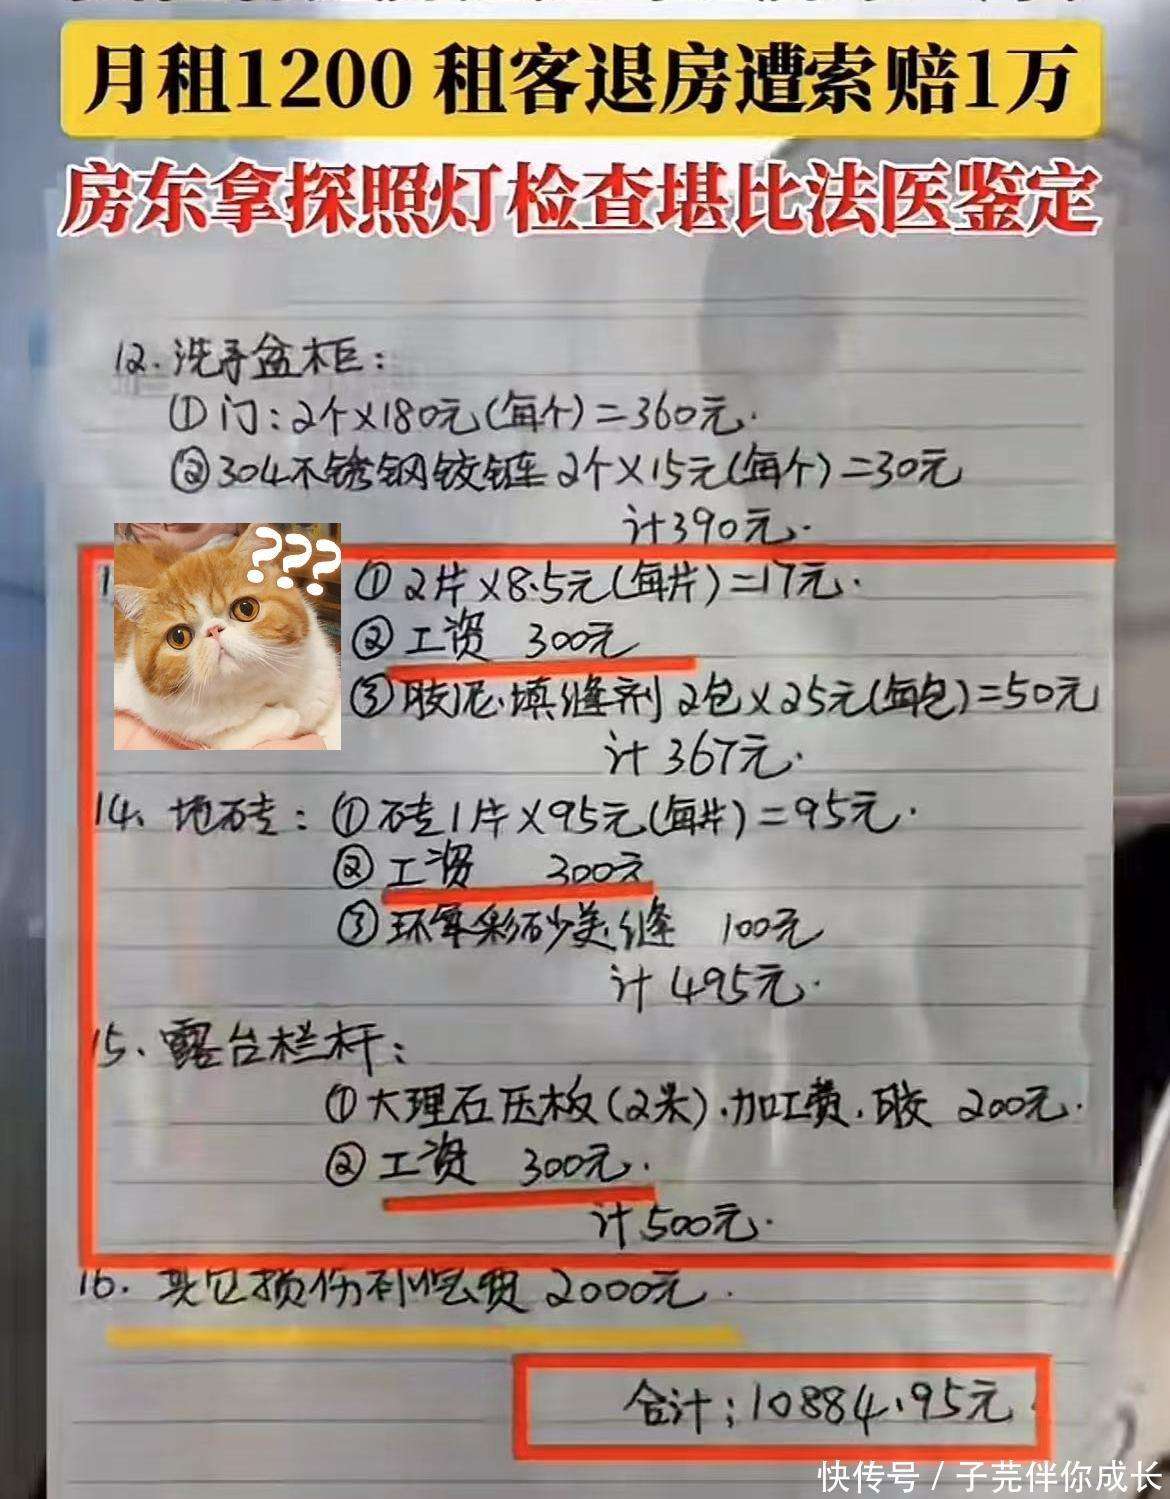 月租1200 租客退房遭索赔1万
房东拿探照灯检查堪比法医鉴定
12.洗手盆柜:
①门:2个×180元(每个)=360元.
②304不锈钢铰链 2个×15元(每个)=30元
计390元.
???
1
①2片×8.5元(每片)=17元.
②工资 300元
③胶泥.填缝剂 2包×25元(每包)=50元
计367元.
14、地砖:①砖1片×95元(每片)=95元.
②工资 300元
③环氧彩砂美缝 100元
计495元.
15、露台栏杆:
①大理石压板(2米).加工费.胶 200元.
②工资 300元.
计500元.
16.其它损伤补偿费 2000元.
合计:10884.95元
快传号/子芫伴你成长